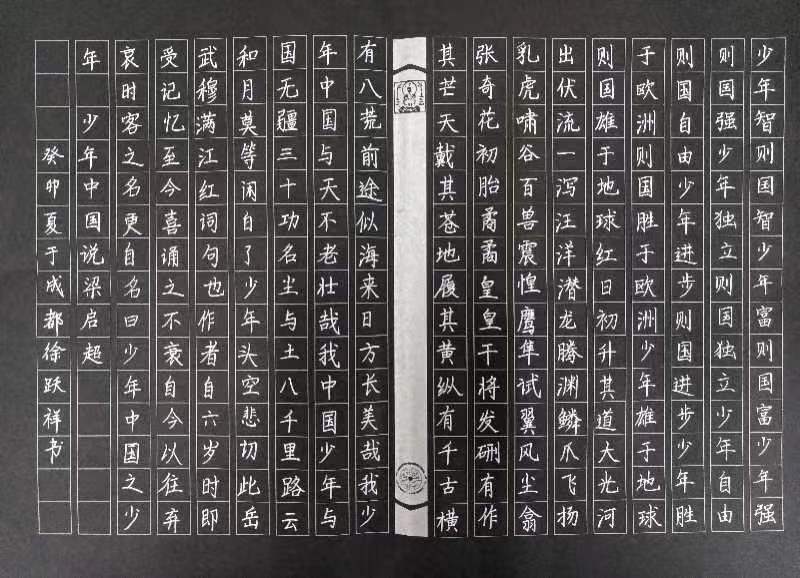 少年智则国智少年富则国富少年强
则国强少年独立则国独立少年自由
则国自由少年进步则国进步少年胜
于欧洲则国胜于欧洲少年雄于地球
则国雄于地球红日初升其道大光河
出伏流一泻汪洋潜龙腾渊鳞爪飞扬
乳虎啸谷百兽震惶鹰隼试翼风尘翕
张奇花初胎矞矞皇皇干将发硎有作
其芒天戴其苍地履其黄纵有千古横
有八荒前途似海来日方长美哉我少
年中国与天不老壮哉我中国少年与
国无疆三十功名尘与土八千里路云
和月莫等闲白了少年头空悲切此岳
武穆满江红词句也作者自六岁时即
受记忆至今喜诵之不衰自今以往弃
哀时客之名更自名曰少年中国之少
年 少年中国说梁启超
癸卯夏于成都徐跃祥书